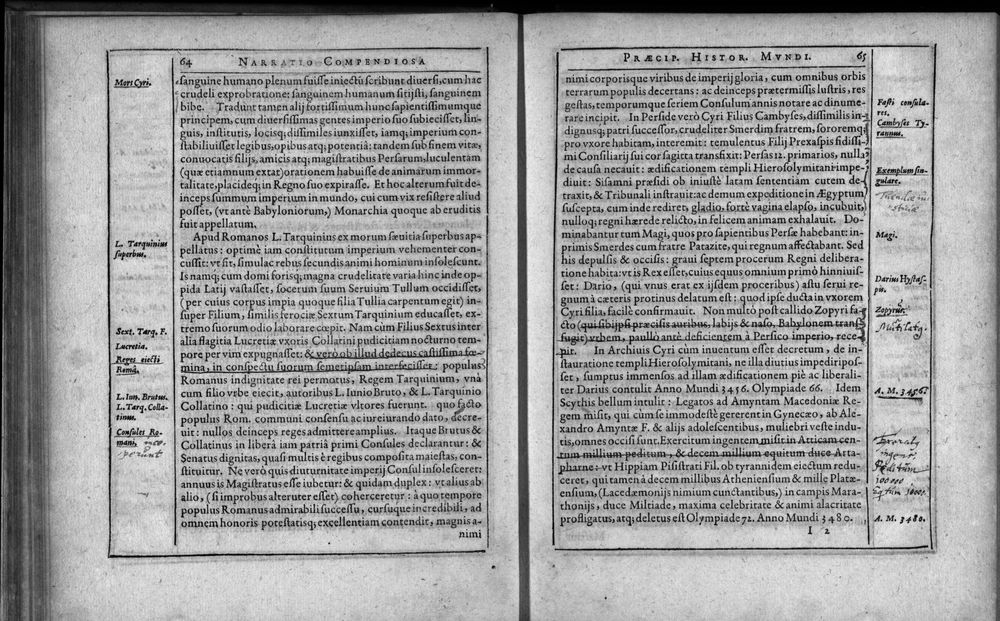 64 NARRATIO COMPENDIOSA
Mors Cyri.
sanguine humano plenum fuisse iniectũ scribunt diuersi, cum hac
crudeli exprobratione: sanguinem humanum sitijsti, sanguinem
bibe. Tradunt tamen alij fortissimum hunc sapientissimumque
principem, cum diuersissimas gentes imperio suo subiecisset, lin-
guis, institutis, locisq; dissimiles iunxisset, iamq; imperium con-
stabiliuisset legibus, opibus atq; potentia: tandem sub finem vitæ,
conuocatis filijs, amicis atq; magistratibus Persarum, luculentam
(quæ etiamnum extat) orationem habuisse de animarum immor-
talitate, placideq; in Regno suo expirasse. Et hoc alterum fuit de-
inceps summum imperium in mundo, cui cum vix resistere aliud
posset, (vt antè Babyloniorum,) Monarchia quoque ab eruditis
fuit appellatum.
L. Tarquinius
superbus.
Apud Romanos L. Tarquinius ex morum sæuitia superbus ap-
pellatus: optimè iam constitutum imperium vehementer con-
cussit: vt fit, simulac rebus secundis animi hominum insolescunt.
Is namq; cum domi forisq; magna crudelitate varia hinc inde op-
pida Latij vastasset, socerum suum Seruium Tullum occidisset,
(per cuius corpus impia quoque filia Tullia carpentum egit) in-
super Filium, similis ferociæ Sextum Tarquinium educasset, ex-
tremo suorum odio laborare cœpit. Nam cum Filius Sextus inter
Sext. Tarq. F.
Lucretia.
Reges eiecti
Româ.
alia flagitia Lucretiæ vxoris Collatini pudicitiam nocturno tem-
pore per vim expugnasset: & verò ob illud dedecus castissima fœ-
mina, in conspectu suorum semetipsam interfecisset: populus
Romanus indignitate rei permotus, Regem Tarquinium, vnà
L. Iun. Brutus.
L. Tarq. Colla-
tinus.
cum filio vrbe eiecit, autoribus L. Iunio Bruto, & L. Tarquinio
Collatino: qui pudicitiæ Lucretiæ vltores fuerunt. quo facto
populus Rom. communi consensu ac iureiurando dato, decre-
uit: nullos deinceps reges admittere amplius. Itaque Brutus &
Consules Ro-
mani,
Collatinus in liberâ iam patriâ primi Consules declarantur: &
Senatus dignitas, quasi multis è regibus composita maiestas, con-
stituitur. Ne verò quis diuturnitate imperij Consul insolesceret:
annuus is Magistratus esse iubetur: & quidam duplex: vt alius ab
alio, (si improbus alteruter esset) coherceretur: à quo tempore
populus Romanus admirabili successu, cursuque incredibili, ad
omnem honoris potestatisq; excellentiam contendit, magnis a-
nimi
PRÆCIP. HISTOR. MVNDI. 65
nimi corporisque viribus de imperij gloria, cum omnibus orbis
terrarum populis decertans: ac deinceps prætermissis lustris, res
gestas, temporumque seriem Consulum annis notare ac dinume-
Fasti consula-
res.
Cambyses Ty-
rannus.
rare incipit. In Perside verò Cyri Filius Cambyses, dissimilis in-
dignusq; patri successor, crudeliter Smerdim fratrem, sororemq;
pro vxore habitam, interemit: temulentus Filij Prexaspis fidissi-
mi Consiliarij sui cor sagitta transfixit: Persas 12. primarios, nulla
de causa necauit: ædificationem templi Hierosolymitani impe-
Exemplum sin-
gulare.
diuit: Sisamni præsidi ob iniustè latam sententiam cutem de-
traxit, & Tribunali instrauit: ac demum expeditione in Ægyptum
suscepta, cum inde rediret, gladio fortè vagina elapso, incubuit,
nulloq; regni hærede relicto, in felicem animam exhalauit. Do-
Magi.
minabantur tum Magi, quos pro sapientibus Persæ habebant: in-
primis Smerdes cum fratre Patazite, qui regnum affectabant. Sed
his depulsis & occisis: graui septem procerum Regni delibera-
tione habita: vt is Rex esset, cuius equus omnium primò hinniuis-
Darius Hystas-
pis.
set: Dario, (qui vnus erat ex ijsdem proceribus) astu serui re-
gnum à cæteris protinus delatum est: quod ipse ducta in vxorem
Zopyrus.
Cyri filia, facilè confirmauit. Non multò post callido Zopyri fa-
cto (qui sibijpsi præcisis auribus, labijs & naso, Babylonem trans-
fugit) vrbem, paullò antè deficientem à Persico imperio, rece-
pit. In Archiuis Cyri cùm inuentum esset decretum, de in-
stauratione templi Hierosolymitani, ne illa diutius impediri pos-
set, sumptus immensos ad illam ædificationem piè ac liberali-
A. M. 3456.
ter Darius contulit Anno Mundi 3456. Olympiade 66. Idem
Scythis bellum intulit: Legatos ad Amyntam Macedoniæ Re-
gem misit, qui cùm se immodestè gererent in Gynecæo, ab Ale-
xandro Amyntæ F. & alijs adolescentibus, muliebri veste indu-
tis, omnes occisi sunt. Exercitum ingentem misit in Atticam cen-
tum millium peditum, & decem millium equitum duce Arta-
pharne: vt Hippiam Pisistrati Fil. ob tyrannidem eiectum redu-
ceret, qui tamen à decem millibus Atheniensium & mille Platæ-
ensium, (Lacedæmonijs nimium cunctantibus,) in campis Mara-
thonijs, duce Miltiade, maxima celebritate & animi alacritate
A. M. 3480.
profligatus, atq; deletus est Olympiade 72. Anno Mundi 3480.
I 2